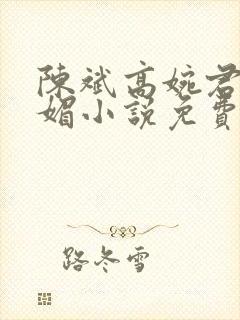 陳斌高婉君
媚小說免費
路冬雪